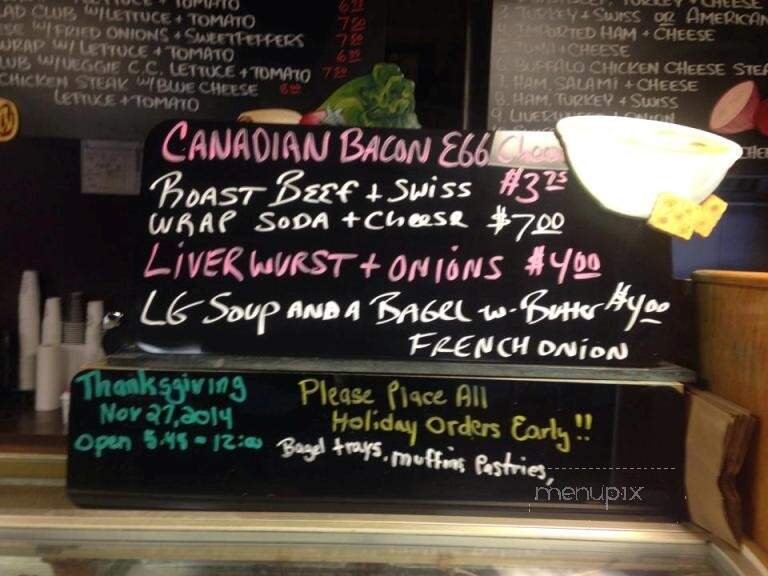 LETTUCE + TOMATO 6
AD CLUB W/LETTUCE + TOMATO 7
SE W/FRIED ONIONS + SWEET PEPPERS 7
WRAP W/ LETTUCE + TOMATO 6
UB W/VEGGIE C.C. LETTUCE + TOMATO 7
CHICKEN STEAK W/BLUE CHEESE
LETTUCE + TOMATO
TURKEY + CHEESE
2. TURKEY + SWISS OR AMERICAN
IMPORTED HAM + CHEESE
TUNA + CHEESE
6. BUFFALO CHICKEN CHEESE STEA
7. HAM, SALAMI + CHEESE
8. HAM, TURKEY + SWISS
9. LIVERWURST + ONION
CANADIAN BACON EGG Cheese
ROAST BEEF + SWISS $3.75
WRAP SODA + CHEESE $7.00
LIVERWURST + ONIONS $4.00
LG SOUP AND A BAGEL w- Butter $4.00
FRENCH ONION
Thanksgiving
Nov 27, 2014
Open 5:45 - 12:00
Please Place All
Holiday Orders Early!!
Bagel trays, muffins Pastries,
menupix